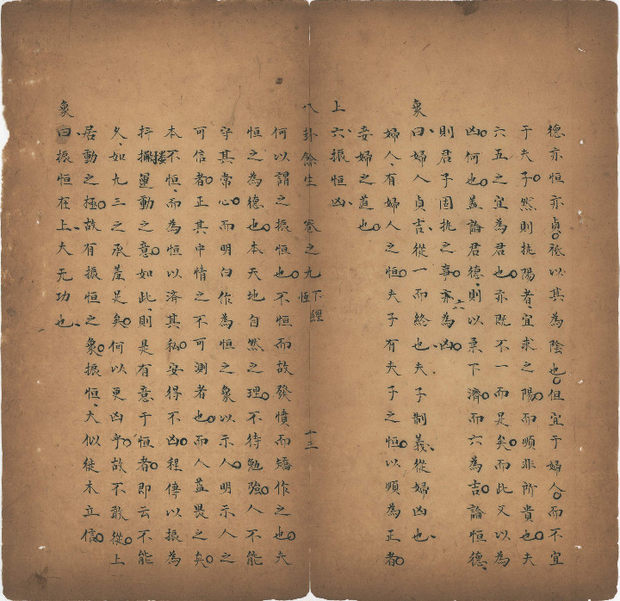 德亦恒亦貞祗以其為陰也但宜于婦人而不宜
于夫子然則執陽者宜求之陽而順非所貴也夫
六五之宜為君也亦既不一而是矣而此又以為
凶何也蓋論君德則以柔下濟而六為吉論恒德
則君子固執之事而六為凶
象曰婦人貞吉從一而終也夫子制義從婦凶也
婦人有婦人之恒夫子有夫子之恒以順為正者
妾婦之道也
上六振恒凶
八卦餘生 卷之九 下經 恒 十三
何以謂之振恒也不恒而故發憤而矯作之也夫
恒之為德也本天地自然之理不待勉強人不能
守其常心而明白作為恒之象以示人明示人之
可信者正其中情之不可測者也而人益畏之矣
本不恒而為恒以濟其私安得不凶程傳以振為
抖擻運動之意如此則是有意于恒者即云不能
久如九三之承羞是矣何以更凶乎故不敢從上
居動之極故有振恒之象振恒大似徙木立信
象曰振恒在上大无功也